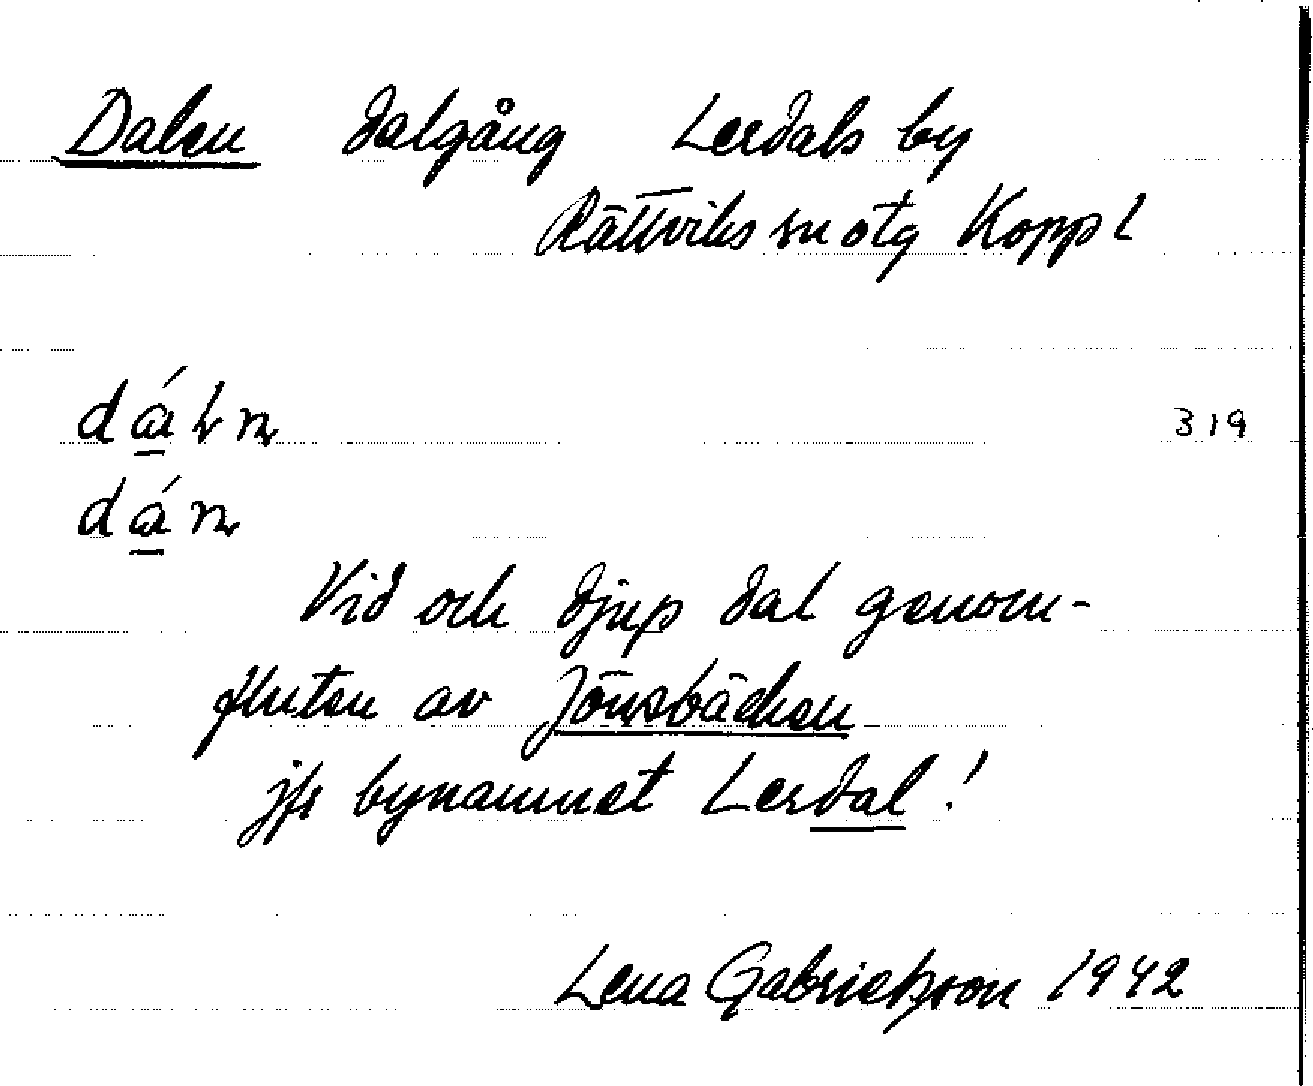 Dalen dalgång Lerdals by
Rättviks sn otg Koppl
319
Vid och djup dal genom-
fluten av Jönsbäcken
jfr bynamnet Lerdal!
Lena Gabrielsson 1942